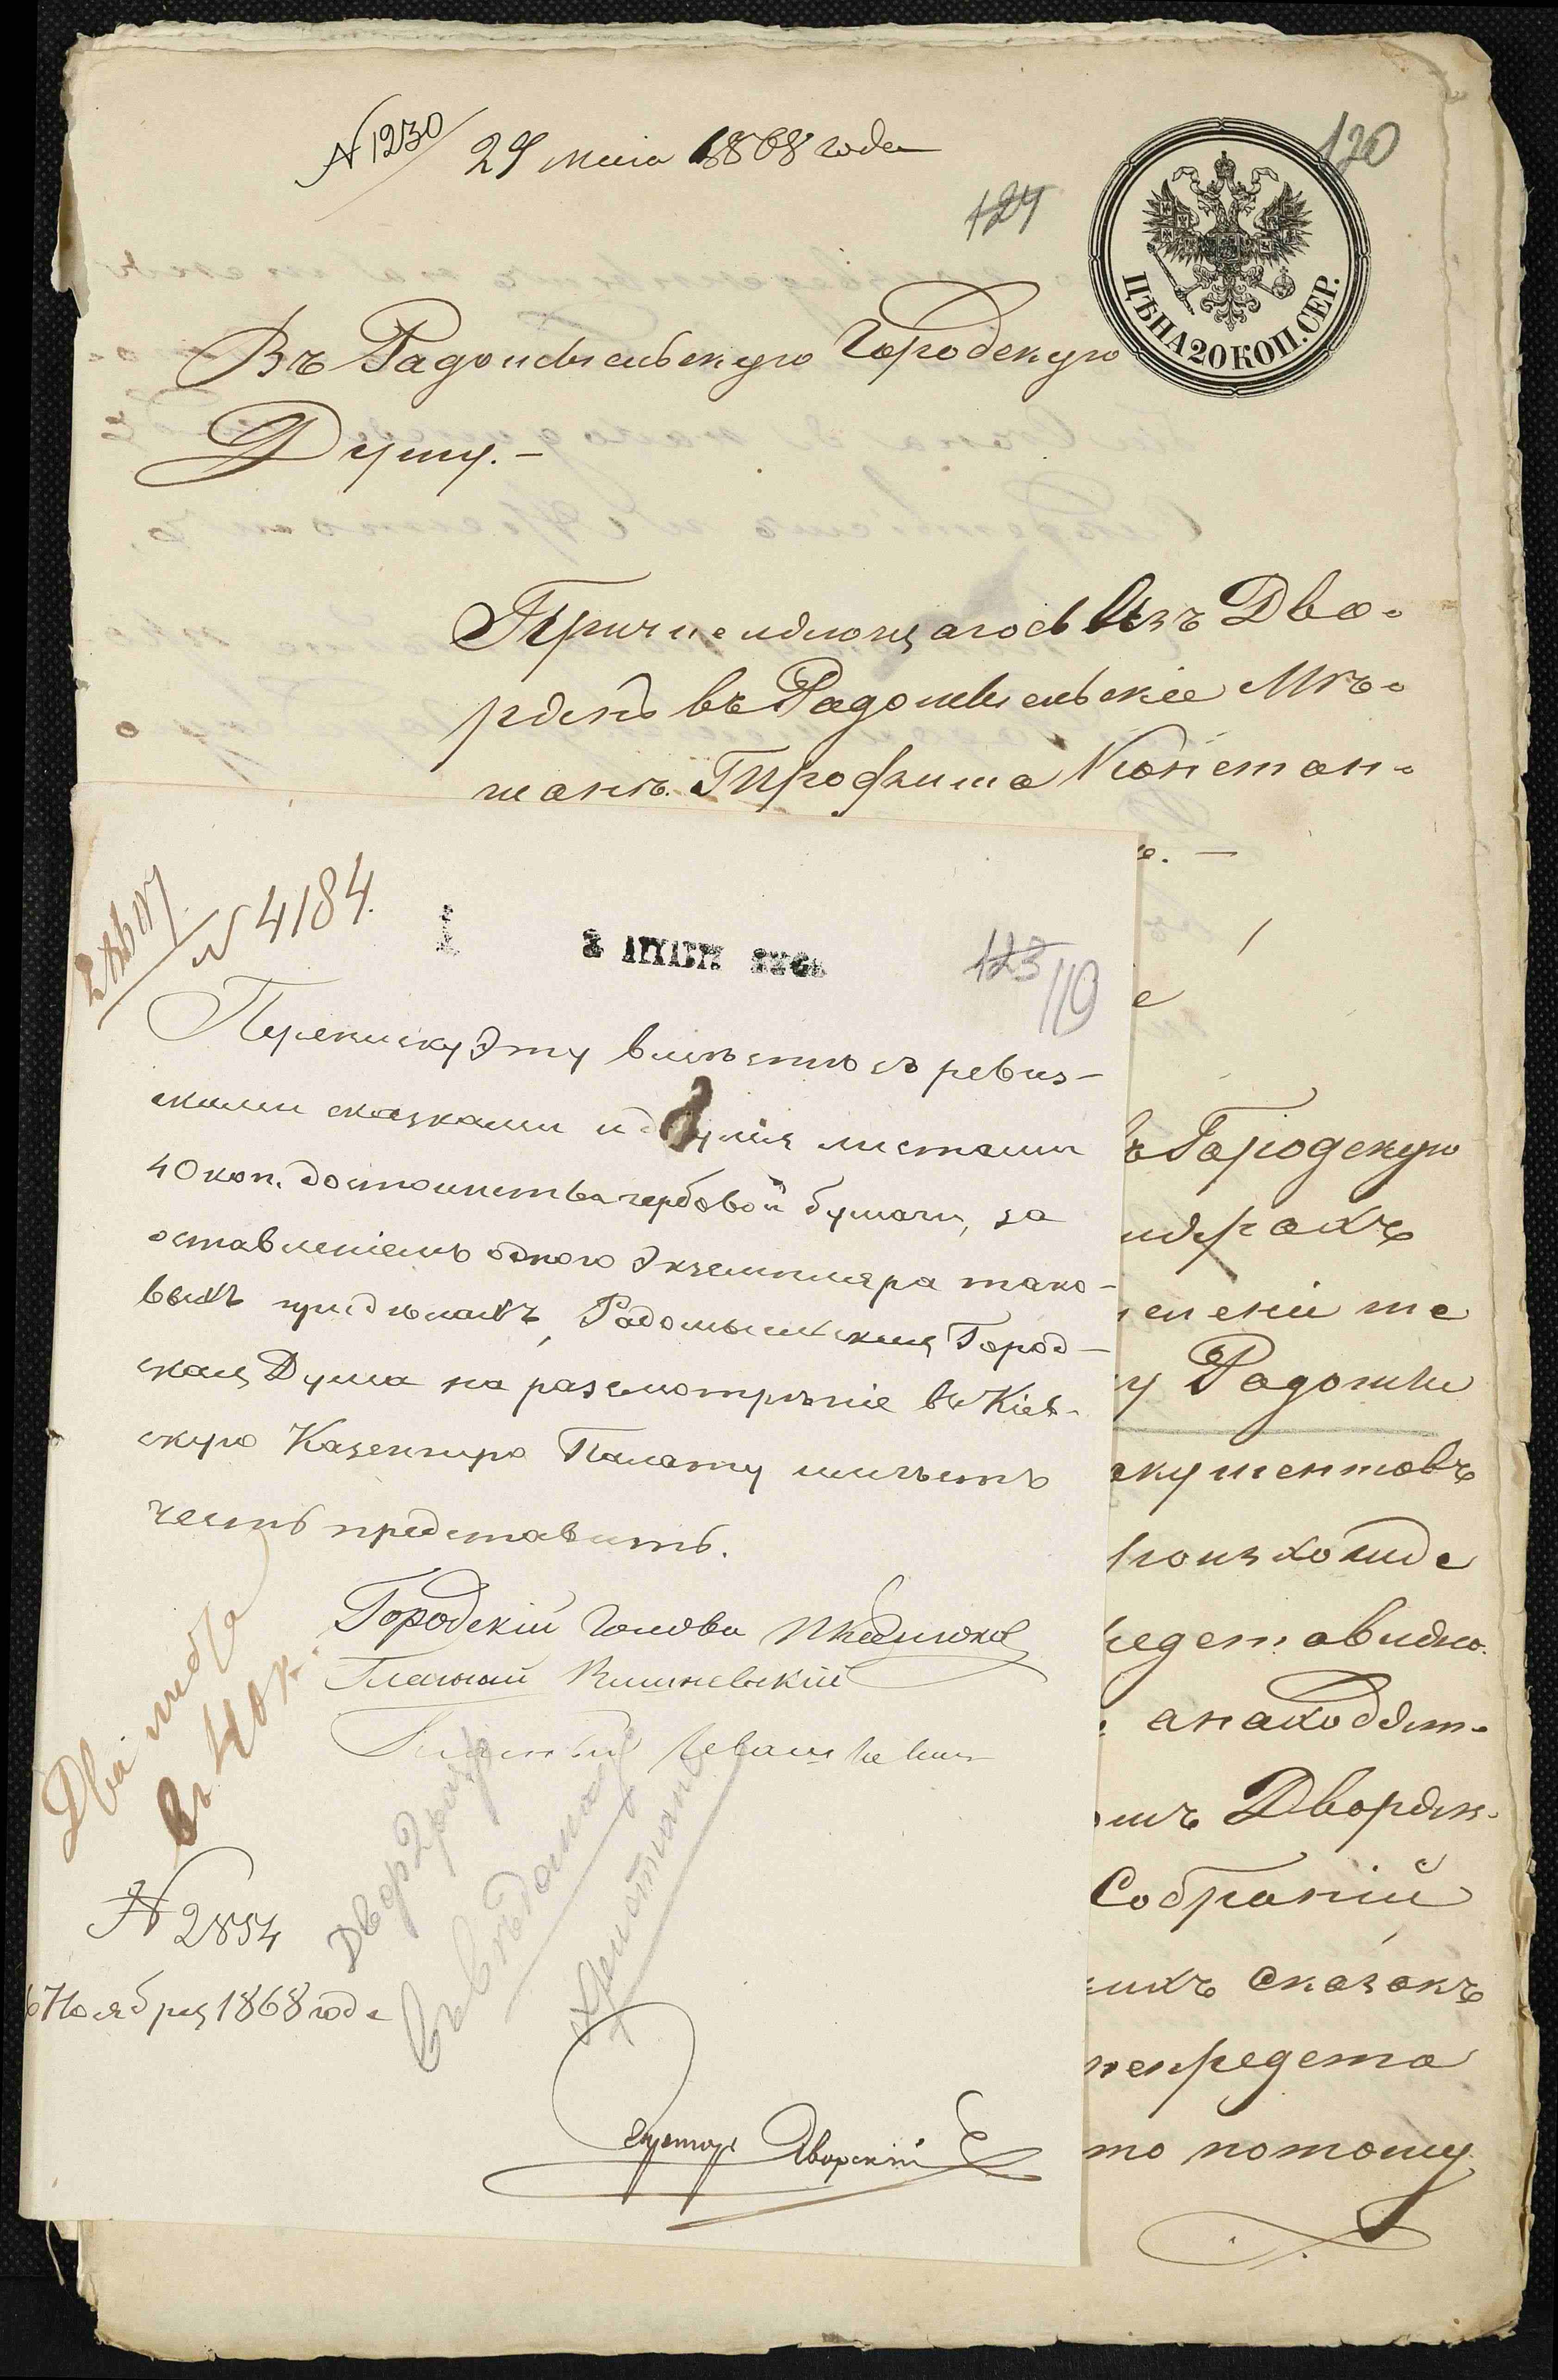 N 1230 29 мая 1868 года
120
124
ЦѢНА 20 КОП. СЕР.
Въ Радомысльскую Городскую
Думу.-
Причисляющагося Изъ Дво-
рянъ въ Радомысльскіе Мѣ-
щанъ Трофима Констан-
е. —
N 4184.
2 1868
123 119
е
Переписку эту вмѣстѣ съ ревиз-
скими сказками и двумя листами
40 коп. достоинства гербовой бумаги, за
оставленіемъ одного экземпляра тако-
выхъ при дѣлахъ, Радомысльская Город-
ская Дума на разсмотрѣніе въ Кіев-
скую Казенную Палату имѣетъ
честь представить.
Городскій Голова
Гласный Вишневскій
Гласный
Два листа
въ 40 к.
N 2854
Ноября 1868 года
Двор
Дворскій
ъ Городскую
дѣлахъ
еніи те
у Радомы
окументовъ
роизхожде
редставляю
а находят-
омъ Дворян-
Собраній
ихъ сказокъ
непредста
то потому